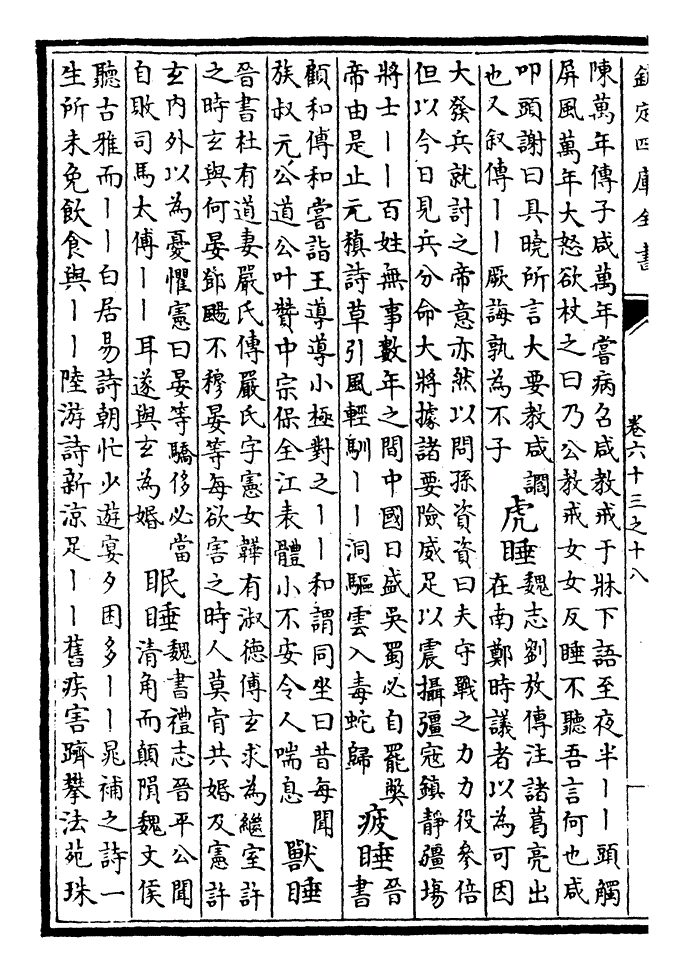 欽定四庫全書
卷六十三之十八
陳萬年傳子咸萬年嘗病召咸教戒于牀下語至夜半丨丨頭觸
屏風萬年大怒欲杖之曰乃公教戒女女反睡不聽吾言何也咸
叩頭謝曰具曉所言大要教咸讇
也又叙傳丨丨厥誨孰為不子
虎睡
魏志劉放傳注諸葛亮出
在南鄭時議者以為可因
大發兵就討之帝意亦然以問孫資資曰夫守戰之力力役參倍
但以今日見兵分命大將據諸要險威足以震攝疆寇鎮靜疆埸
將士丨丨百姓無事數年之間中國日盛吳蜀必自罷獘
帝由是止元稹詩草引風輕馴丨丨洞驅雲入毒蛇歸
疲睡
晉
書
顧和傳和嘗詣王導導小極對之丨丨和謂同坐曰昔每聞
族叔元公道公叶贊中宗保全江表體小不安令人喘息
獸睡
晉書杜有道妻嚴氏傳嚴氏字憲女韡有淑德傅玄求為繼室許
之時玄與何晏鄧颺不穆晏等每欲害之時人莫肯共婚及憲許
玄內外以為憂懼憲曰晏等驕侈必當
自敗司馬太傅丨丨耳遂與玄為婚
眠睡
魏書禮志晉平公聞
清角而顛隕魏文侯
聽古雅而丨丨白居易詩朝忙少遊宴夕困多丨丨晁補之詩一
生所未免飲食與丨丨陸游詩新涼足丨丨舊疾害躋攀法苑珠